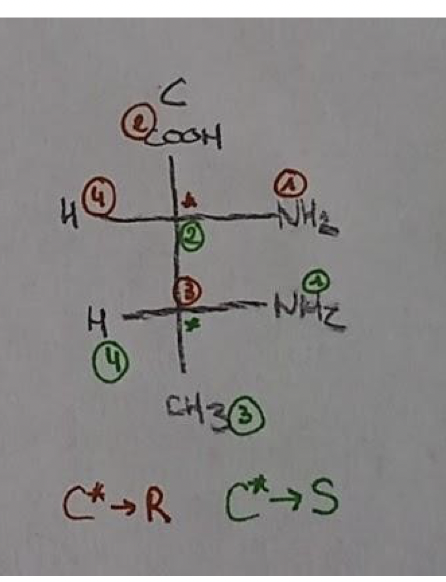 C
② COOH
H ④ * ① NH2
②
③ ①
H * NH2
④
CH3 ③
C* → R C* → S